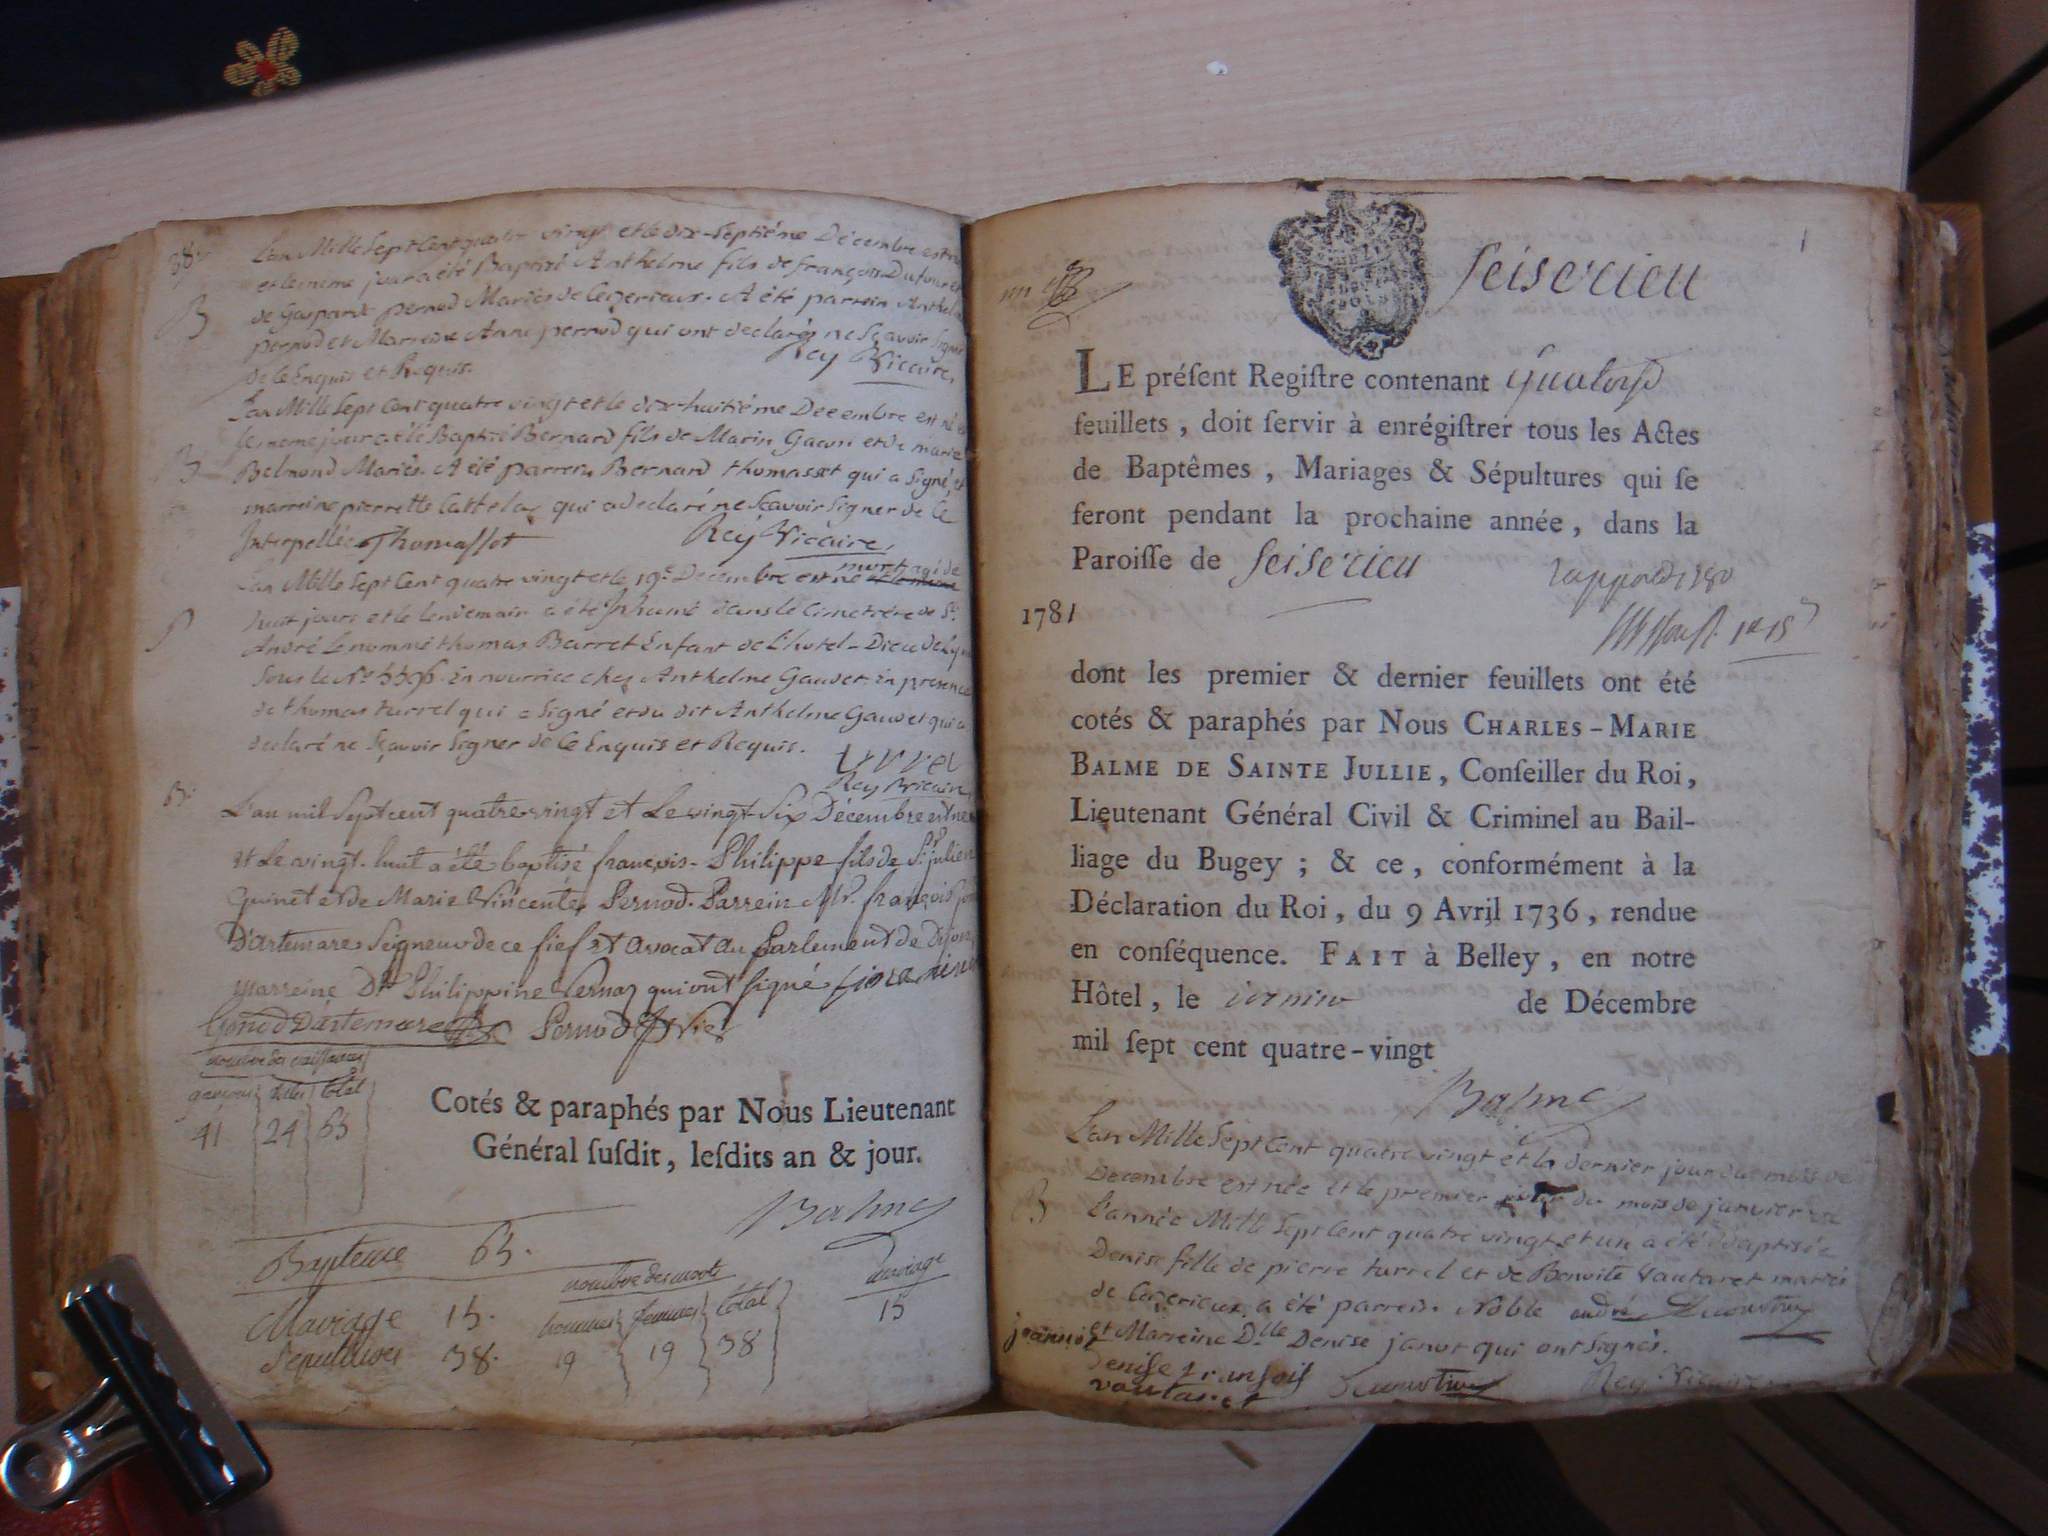 38e
L'an Mille Sept Cent quatre vingt et le dix-Septiéme Décembre est né
et le meme jour a été Baptisé Anthelme fils de françois Dufour et
de Gasparde pernod Mariés de Ceyzerieux. A été parrein Anthelme
B
pernod et Marreine Anne pernod qui ont declarés ne Sçavoir Signer
de le Enquis et Requis.
Rey Vicaire.
L'an Mille Sept Cent quatre vingt et le dix-huitiéme Decembre est né et
le meme jour a été Baptisé Bernard fils de Marin Gacon et de marie
B
Belmond Mariés. A été parrein Bernard thomasset qui a Signé, et
marreine pierrette Cattelas qui a declaré ne Sçavoir Signer de Ce
Interpellée Thomasset
Rey Vicaire.
mort agé de
L'an Mille Sept Cent quatre vingt et le 19e Decembre est né et le meme
huit jours et le lendemain a été Inhumé dans le Cimetière de St
André le nommé thomas Barret Enfant de L'hotel-Dieu de Lyon
Sous le No En nourrice chez Anthelme Gaudet en presence
de thomas turrel qui a Signé et du dit Anthelme Gaudet qui a
declaré ne Sçavoir Signer de Ce Enquis et Requis.
turrel
Rey Vicaire
B.
L'an mil Sept cent quatre vingt et Le vingt-Six Décembre est né
et Le vingt-huit a été baptisé françois-Philippe fils de Sr julien
Quinet et de Marie Vincente Pernod. Parrein Mr. françois
D'artemare Seigneur de ce fief et avocat au Parlement de Dijon,
Marreine Dlle Philippine qui ont signé
Gonod D'artemare
nombre des naissances
garçons filles total
41 24 65
Cotés & paraphés par Nous Lieutenant
Général susdit, lesdits an & jour.
Balme
Bapteme 65.
Mariage 15.
Sepultures 38.
nombre des morts
hommes femmes total
19 19 38
mariage
15
1
Seiserieu
LE présent Registre contenant quatorse
feuillets, doit servir à enrégistrer tous les Actes
de Baptêmes, Mariages & Sépultures qui se
feront pendant la prochaine année, dans la
Paroisse de Seiserieu
1781
dont les premier & dernier feuillets ont été
cotés & paraphés par Nous CHARLES-MARIE
BALME DE SAINTE JULLIE, Conseiller du Roi,
Lieutenant Général Civil & Criminel au Bail-
liage du Bugey ; & ce, conformément à la
Déclaration du Roi, du 9 Avril 1736, rendue
en conséquence. FAIT à Belley, en notre
Hôtel, le de Décembre
mil sept cent quatre-vingt
Balme
L'an Mille Sept Cent quatre vingt et le dernier jour du mois de
Decembre est née et le premier du mois de janvier
B
L'année Mille Sept Cent quatre vingt et un a été Baptisée
Denise fille de pierre turrel et de Benoite Vautaret mariés
de Ceyzerieux, a été parrein Noble andré
et Marreine Dlle Denise janot qui ont Signés.
Denise
vautaret
Rey Vicaire